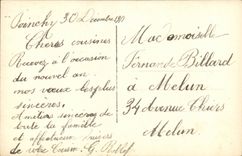 Joinchy 30 Décembre
Chères cousines
Recevez à l'occasion
du nouvel an
mes vœux les plus
sincères.
et meilleurs sincères de
toute la famille
et affectueux baisers
de votre G.
Mademoiselle
Fernande Billard
à Melun
34 Avenue Thiers
Melun